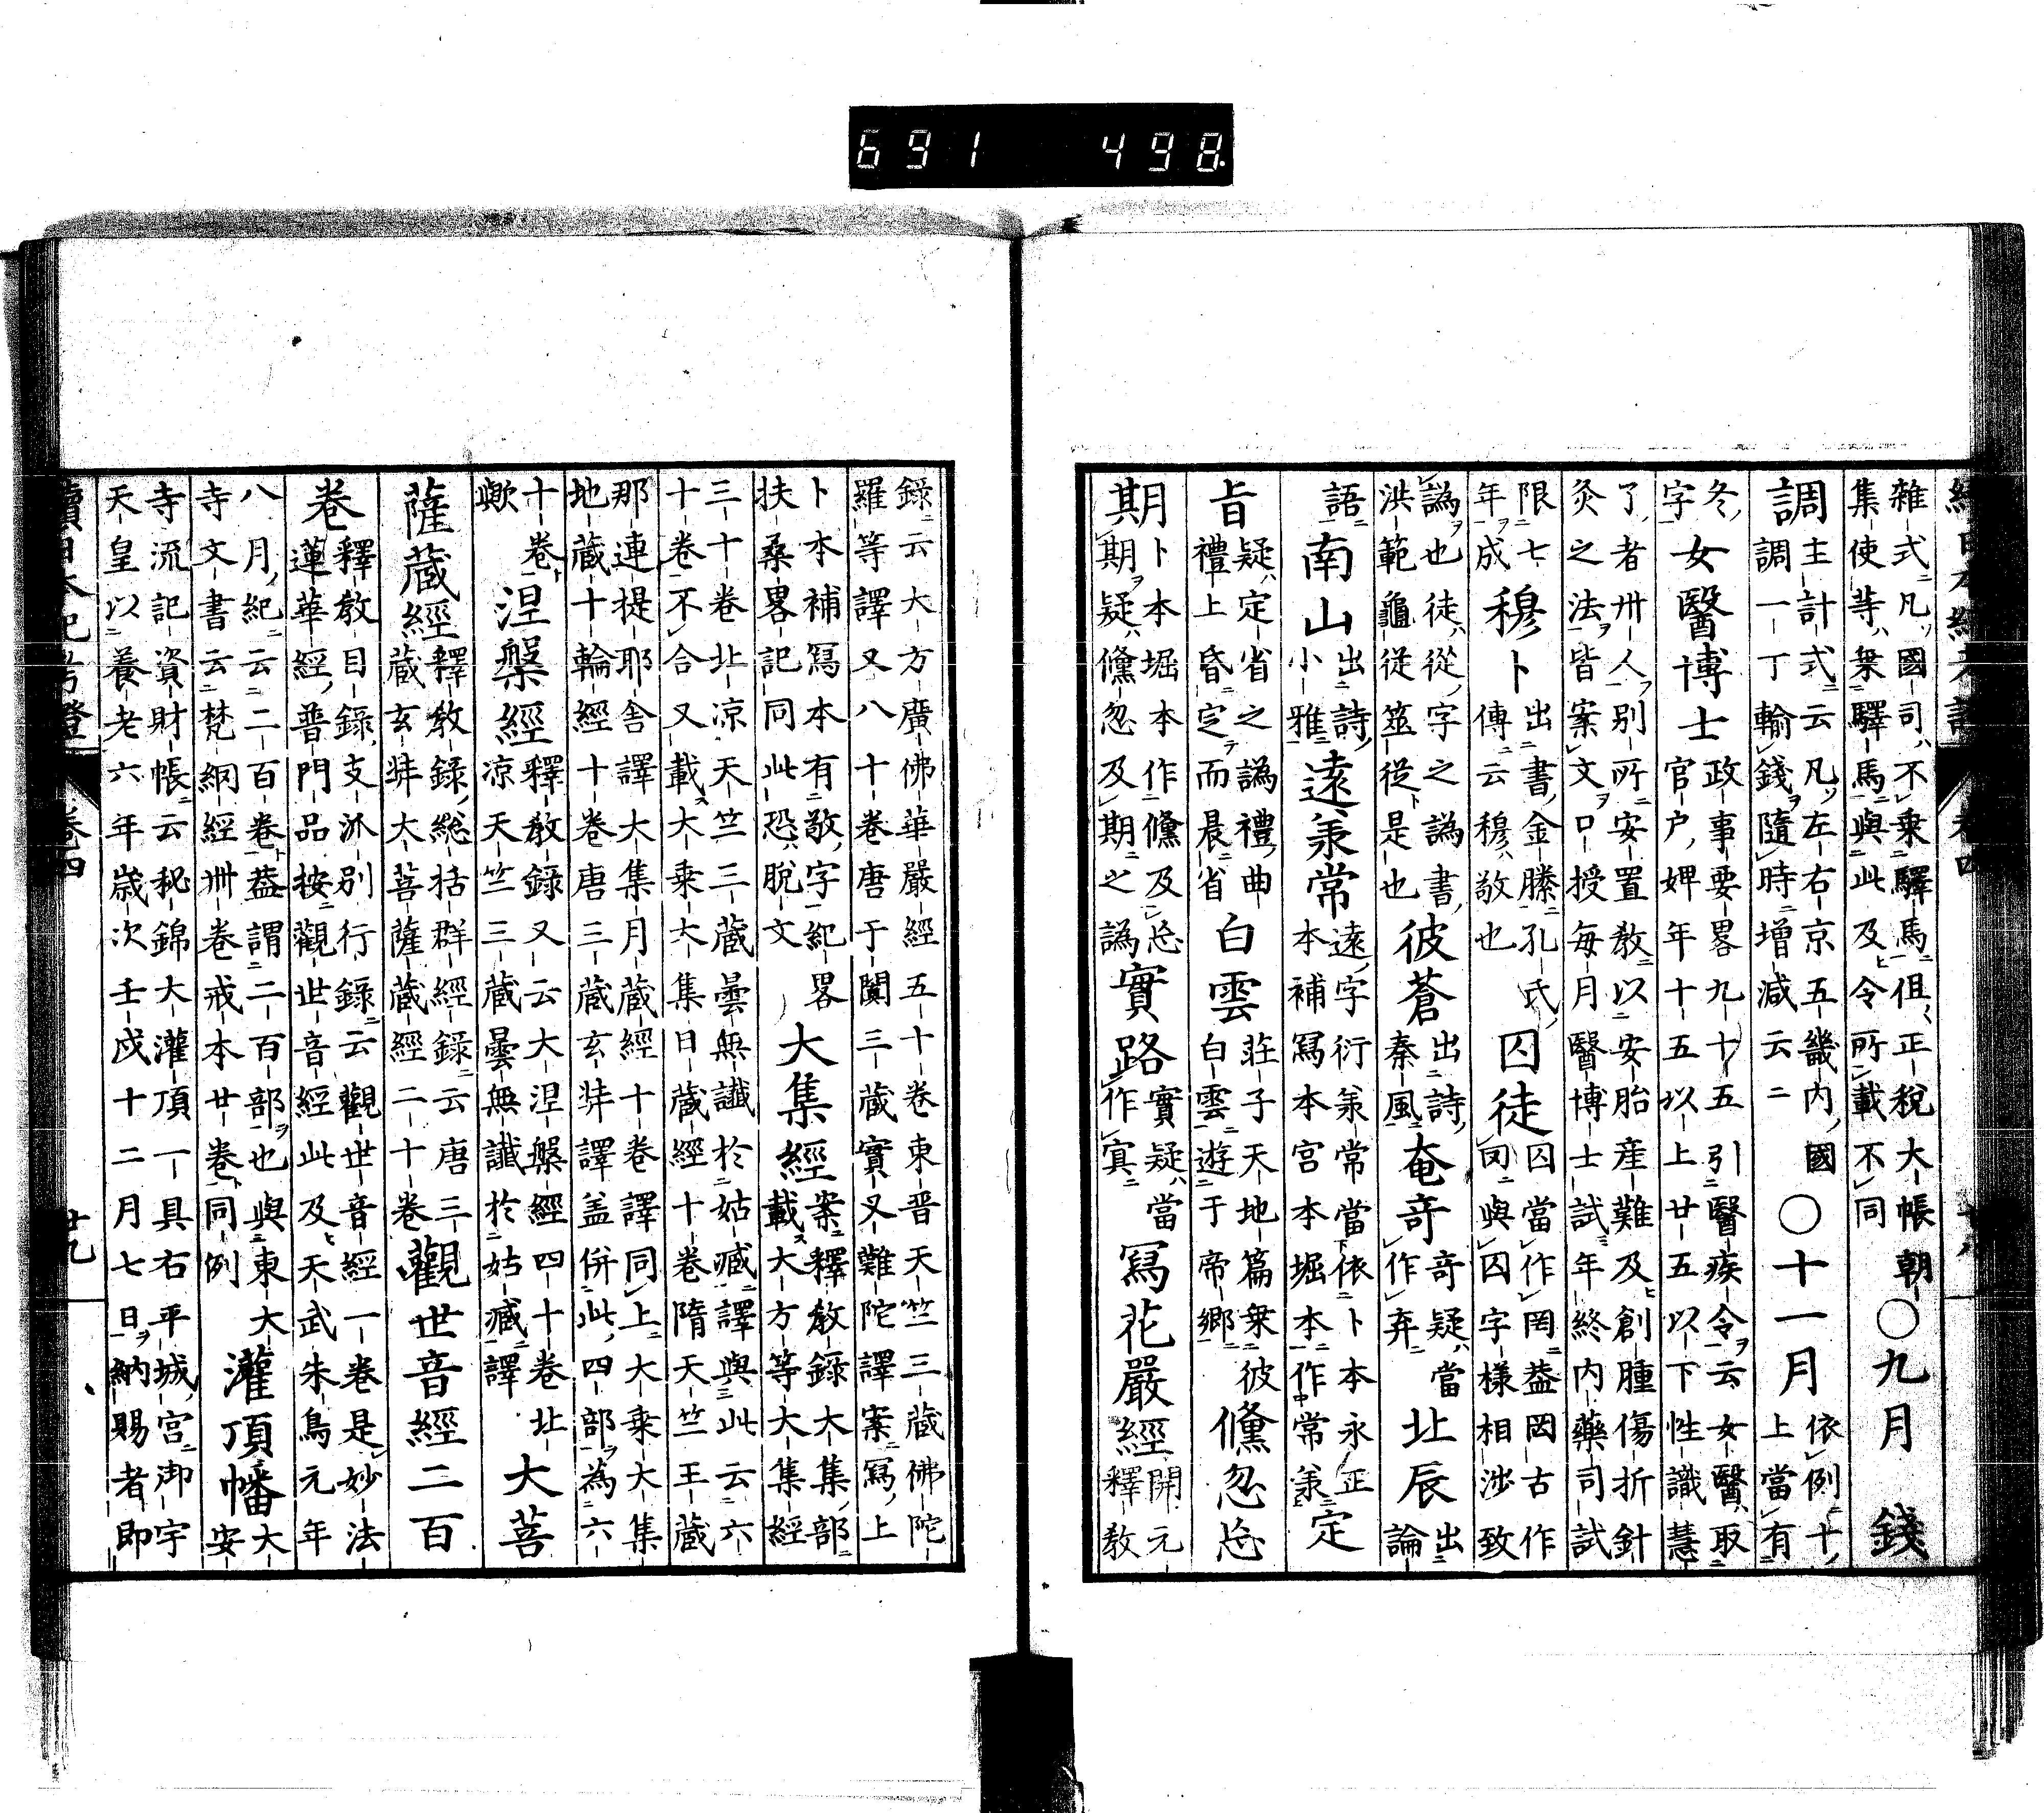 691 498
續日本紀考證 卷四 十八
雜式凡國司不乗驛馬但正税大帳朝
集使等乗驛馬與此及令所載不同
〇九月 錢
調
主計式云凡左右京五畿内國
調一丁輸錢隨時増減云二
〇十一月
依例十
上當有
冬
字
女醫博士
政事要畧九十五引醫疾令云女醫取
官户婢年十五以上廿五以下性識慧
了者卅人別所安置教以安胎産難及創腫傷折針
灸之法皆案文口授毎月醫博士試年終内藥司試
限七
年成
穆卜
出書金縢孔氏
傳云穆敬也
囚徒
囚當作罔葢罔古作
囱與囚字様相渉致
譌也徒從字之譌書
洪範龜従筮従是也
彼蒼
出詩
秦風
奄奇
奇疑當
作弃
北辰
出
論
語
南山
出詩
小雅
遠兼常
遠字衍兼常當依卜本永正
本補冩本宮本堀本作常兼
定
㫖
疑定省之譌禮曲
禮上昏定而晨省
白雲
莊子天地篇乗彼
白雲遊于帝郷
儵忽怂
期
卜本堀本作儵及怂
期疑儵忽及期之譌
實路
實疑當
作寘
冩花嚴經
開元
釋教
錄云大方廣佛華嚴經五十卷東晋天竺三藏佛陀
羅等譯又八十卷唐于闐三藏實叉難陀譯案冩上
卜本補冩本有敬字紀畧
扶桑畧記同此恐脱文
大集經
案釋教錄大集部
載大方等大集經
三十卷北凉天竺三藏曇無讖於姑臧譯與此云六
十卷不合又載大乗大集日藏經十卷隋天竺王藏
那連提耶舍譯大集月藏經十卷譯同上大乗大集
地藏十輪經十卷唐三藏玄弉譯盖併此四部為六
十卷
歟
涅槃經
釋教錄又云大涅槃經四十卷北
凉天竺三藏曇無讖於姑臧譯
大菩
薩藏經
釋教錄總括群經錄云唐三
藏玄弉大菩薩藏經二十卷
觀世音經二百
卷
釋教目錄支泒別行錄云觀世音經一卷是妙法
蓮華經普門品按觀世音經此及天武朱鳥元年
八月紀云二百卷葢謂二百部也與東大
寺文書云梵綱經卅卷戒本廿卷同例
灌頂幡
大
安
寺流記資財帳云秘錦大灌頂一具右平城宮御宇
天皇以養老六年歳次壬戌十二月七日納賜者即
續日本紀考證 卷四 廿九